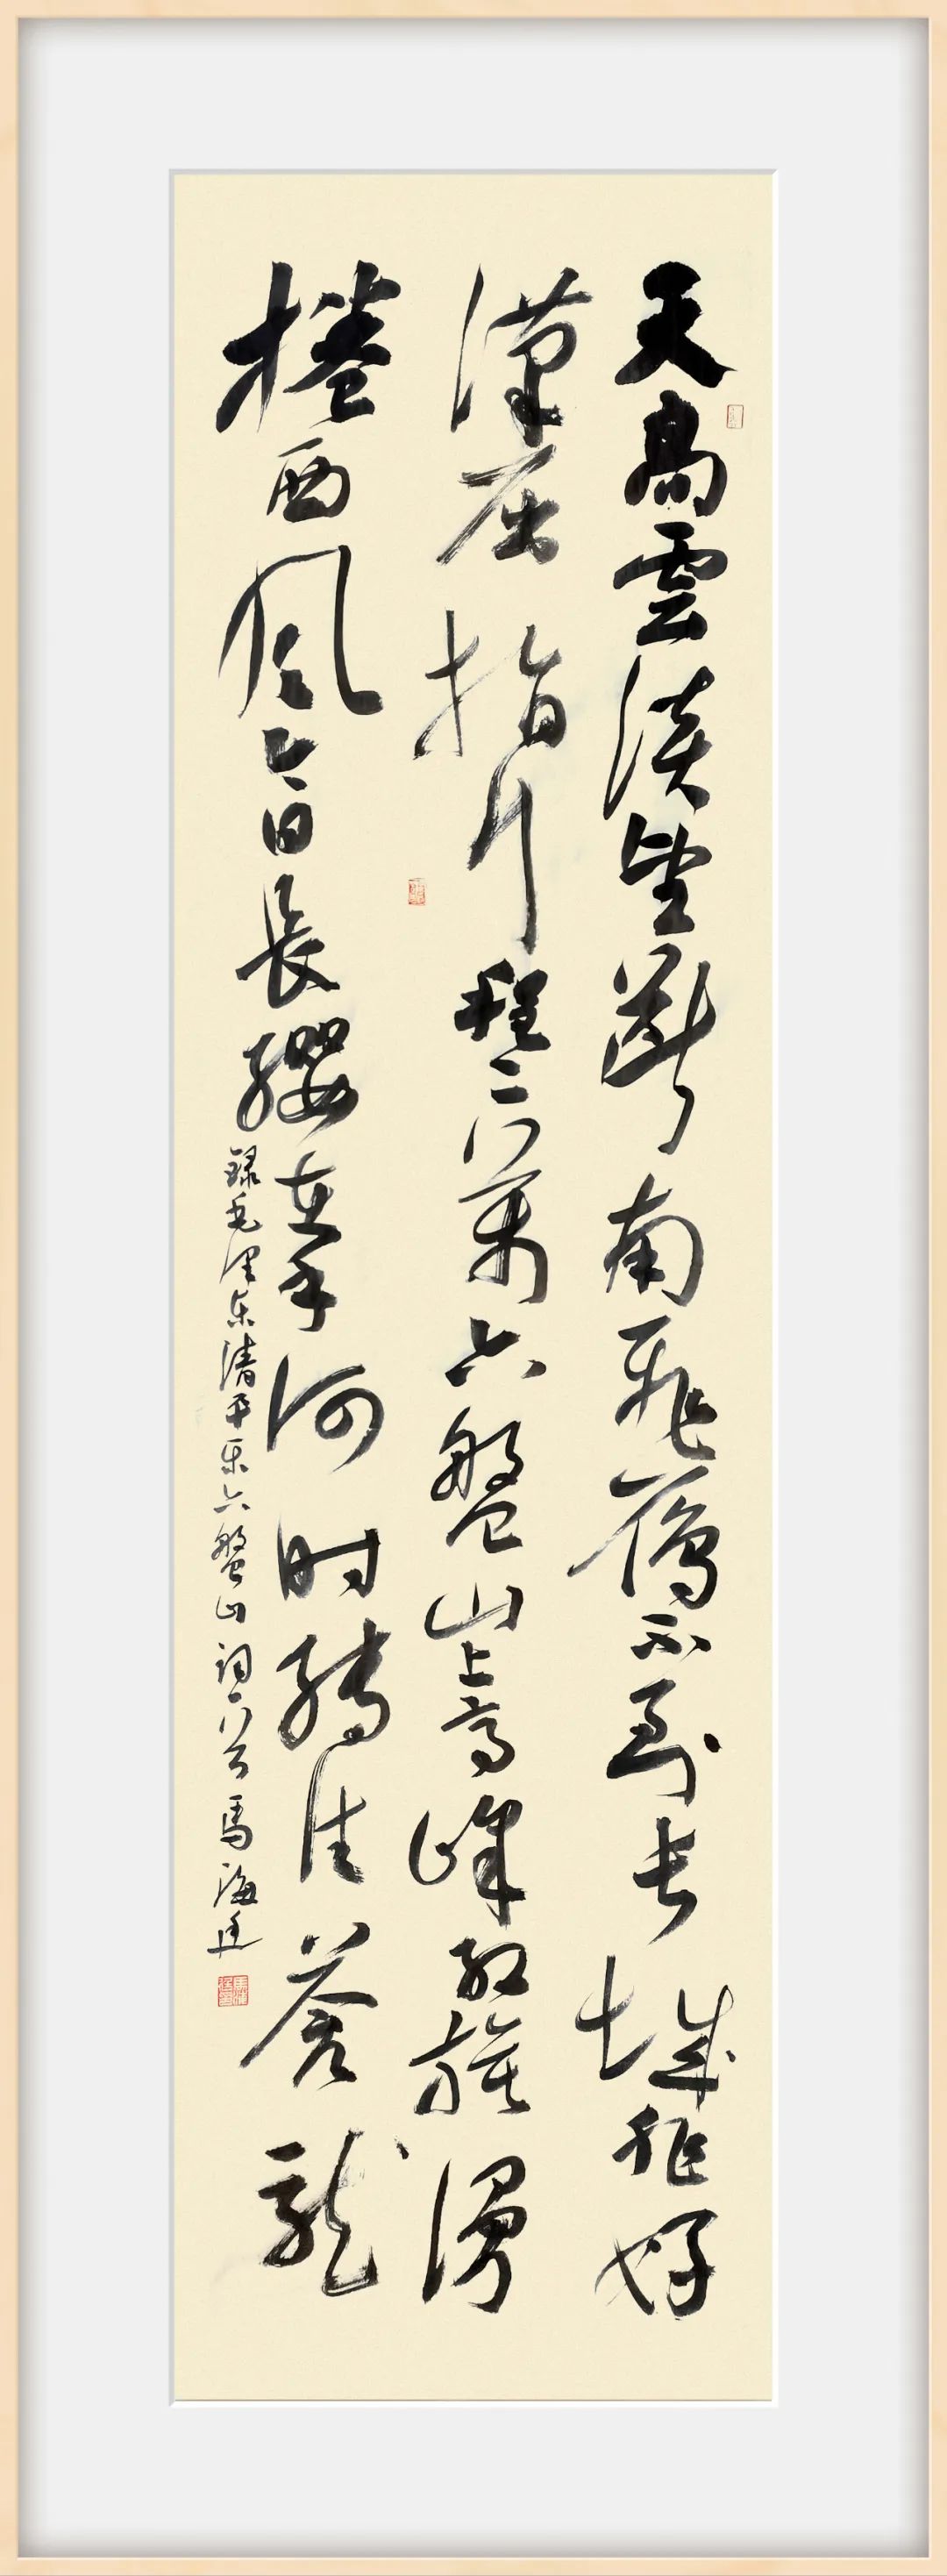 天高雲淡望斷南飛鴈不到長城非好
漢屈指行程二萬六盤山上高峰紅旗漫
捲西風今日長纓在手何时縛住蒼龍
錄毛澤東清平樂六盤山詞一首馬海